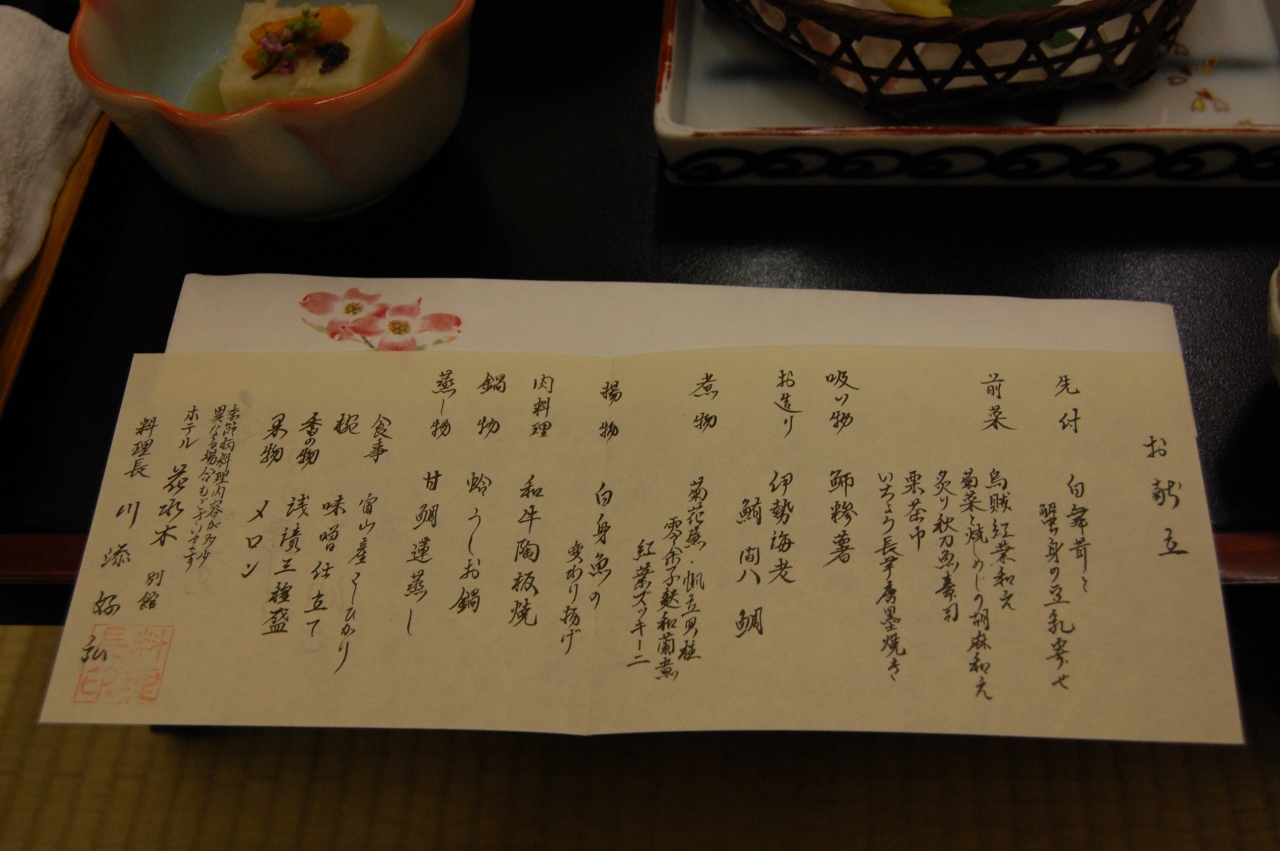 お献立
先付
白舞茸と
蟹身の豆乳寄せ
前菜
烏賊紅葉和え
菊菜と焼しめじの胡麻和え
炙り秋刀魚寿司
栗茶巾
いちょう長芋唐墨焼き
吸い物
鰤糝薯
お造り
伊勢海老
鮪 間八 鯛
煮物
菊花蕪・帆立貝柱
零余子麩和蘭煮
紅葉ズッキーニ
揚物
白身魚の
変わり揚げ
肉料理
和牛陶板焼
鍋物
蛤うしお鍋
蒸し物
甘鯛蓮蒸し
食事
富山産こしひかり
椀
味噌仕立て
香の物
浅漬三種盛
果物
メロン
季節柄料理内容が多少
異なる場合もございます
ホテル 花水木 別館
料理長 川添 好弘
料理長印